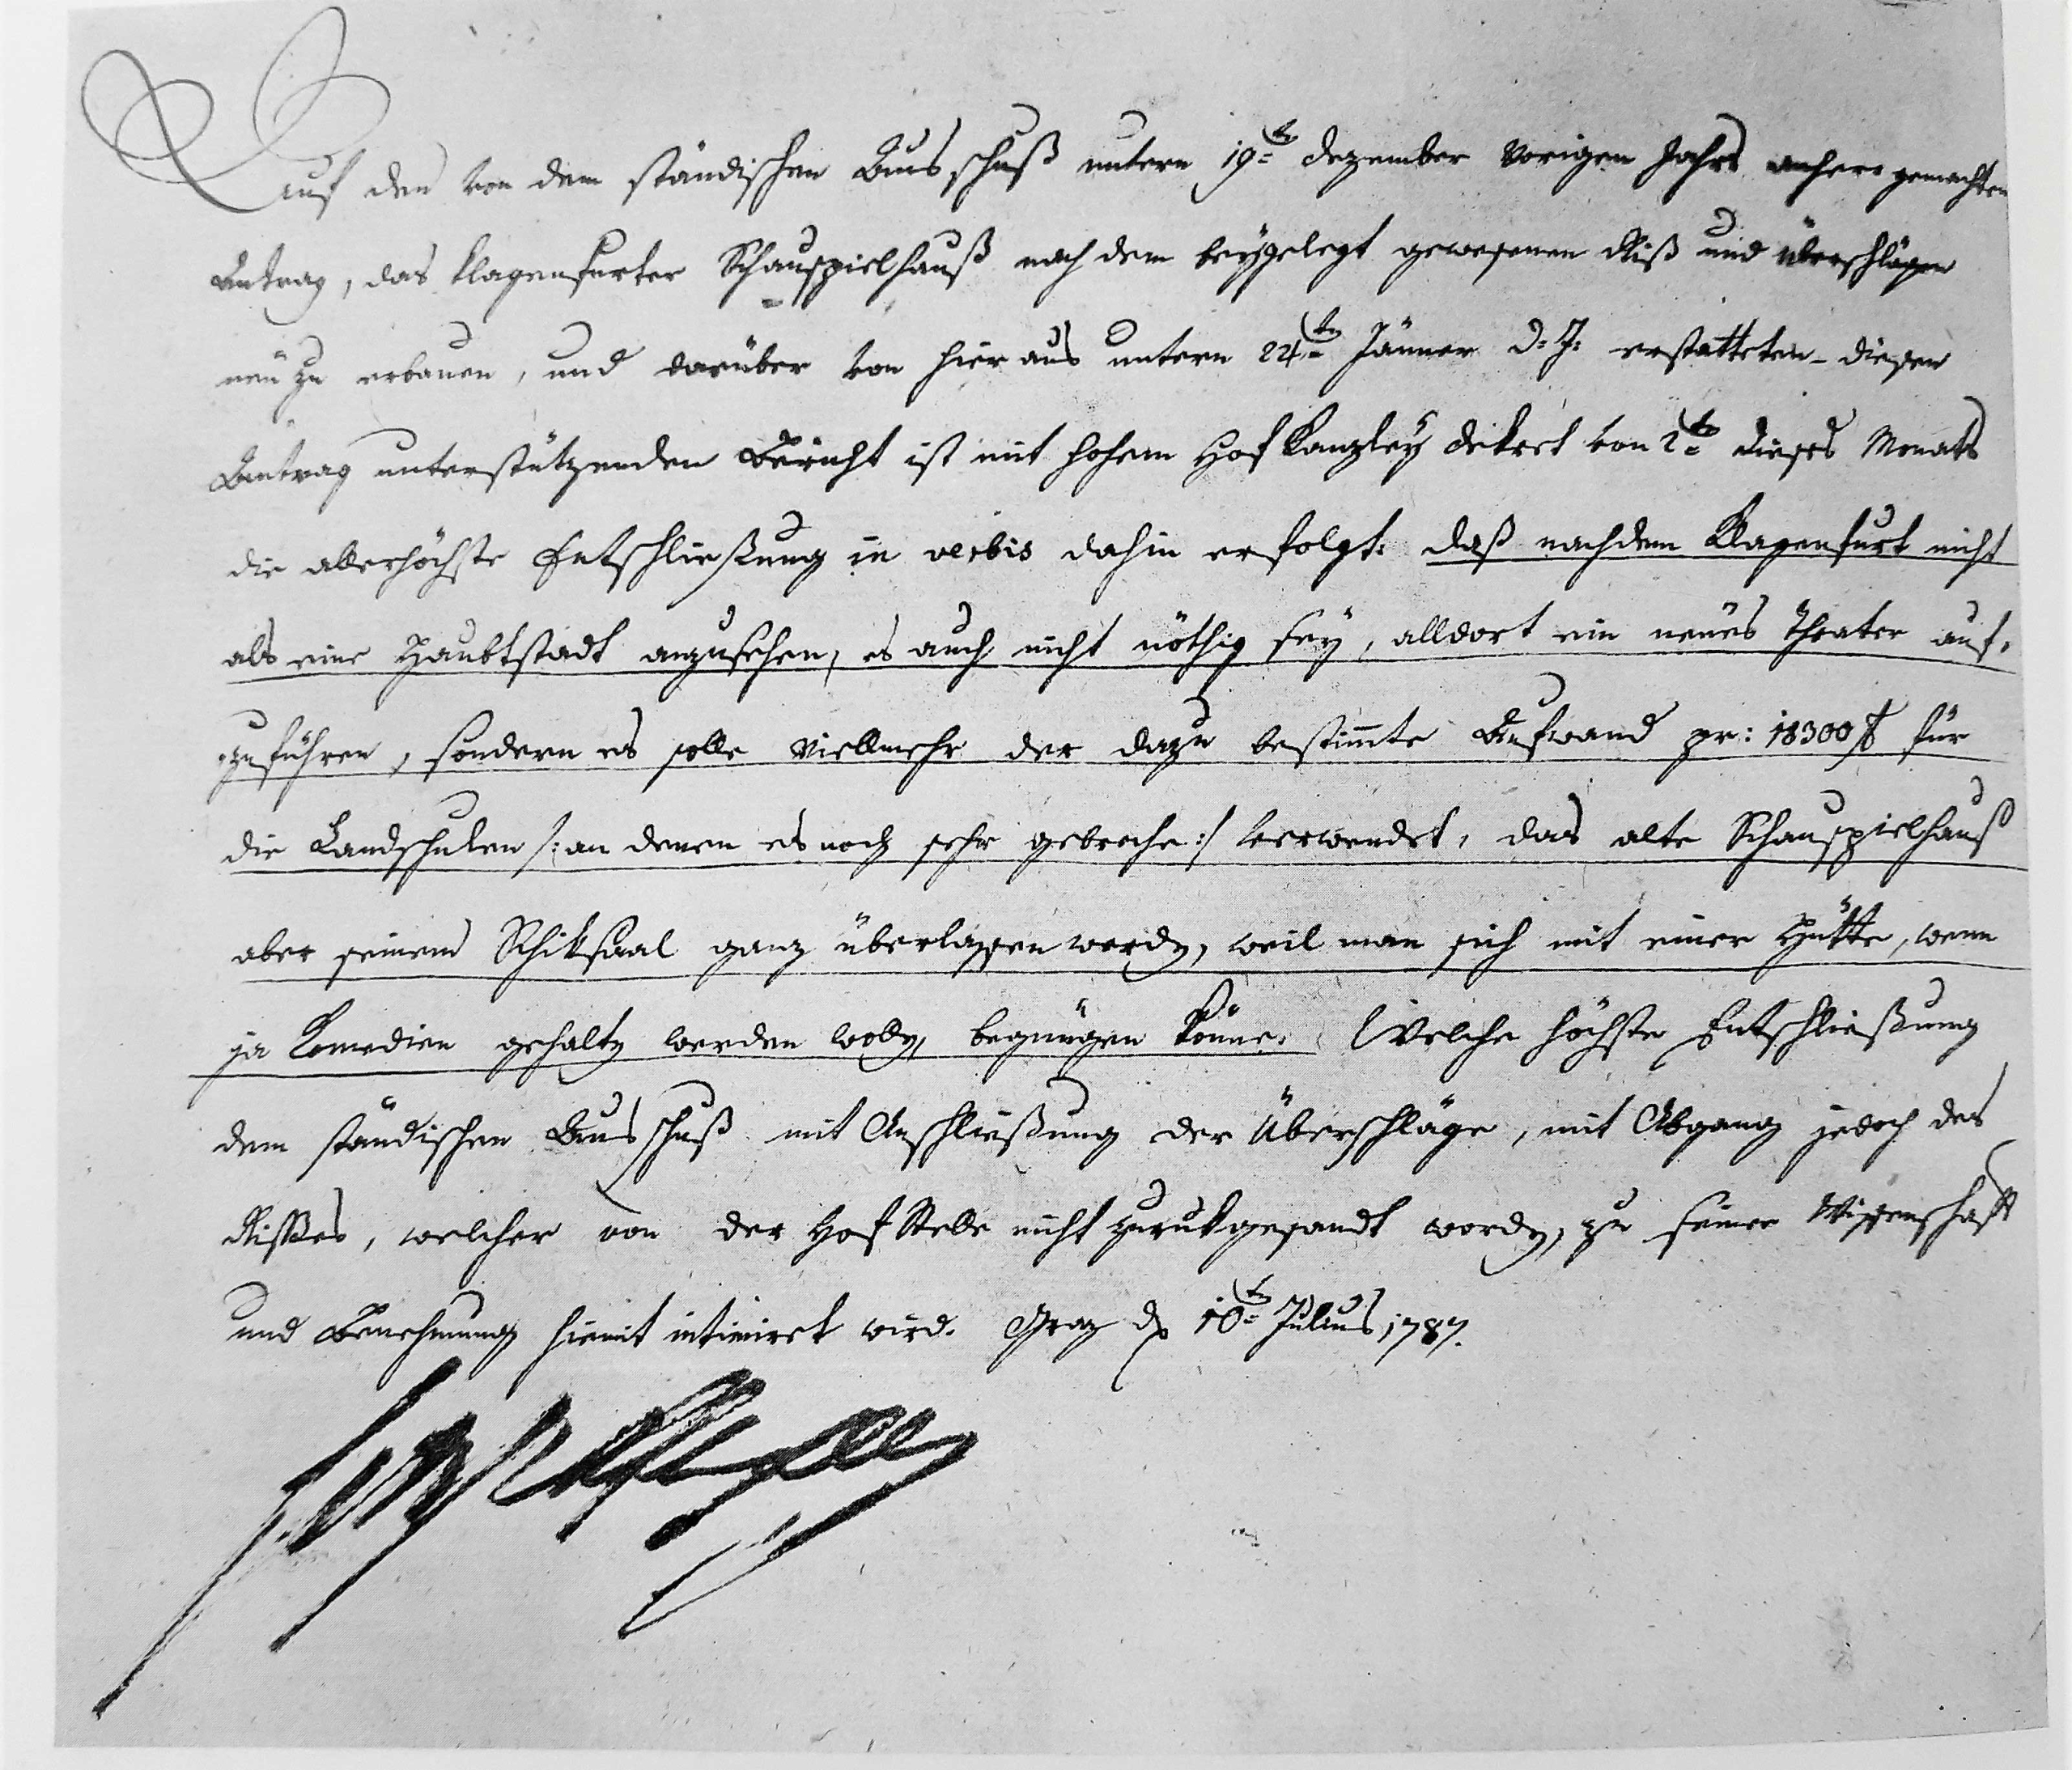 Auf den von dem ständischen Ausschuß untern 19ten Dezember vorigen Jahrs anhero gemachten
Antrag, das Klagenfurter Schauspielhauß nach dem beygelegt gewesenen Riß und Überschlägen
neu zu erbauen, und darüber von hieraus untern 24ten Jänner d: J: erstatteten - diesen
Antrag unterstützenden Bericht ist mit hohem Hof Kanzley Dekret von 2ten dieses Monats
die allerhöchste Entschließung in verbis dahin erfolgt: daß nachdem Klagenfurt nicht
als eine Haubtstadt anzusehen, es auch nicht nöthig sey, alldort ein neues Theater auf-
zuführen, sondern es solle viellmehr der dazu bestimmte Aufwand pr: 18300 f für
die Landschulen /: an denen es noch sehr gebreche :/ verwendet, das alte Schauspielhauß
aber seinem Schiksaal ganz überlassen werden, weil man sich mit einer Hütte, wenn
ja Komedien gehalten werden wollen, begnügen könne. Welche höchste Entschließung
dem ständischen Ausschuß mit Anschließung der Überschläge, mit Abgang jedoch des
Rißes, welcher von der Hof Stelle nicht zurukgesandt worden, zu seiner Wissenschaft
und Benehmung hiemit intimiret wird. Graz den 10ten Julius 1787.